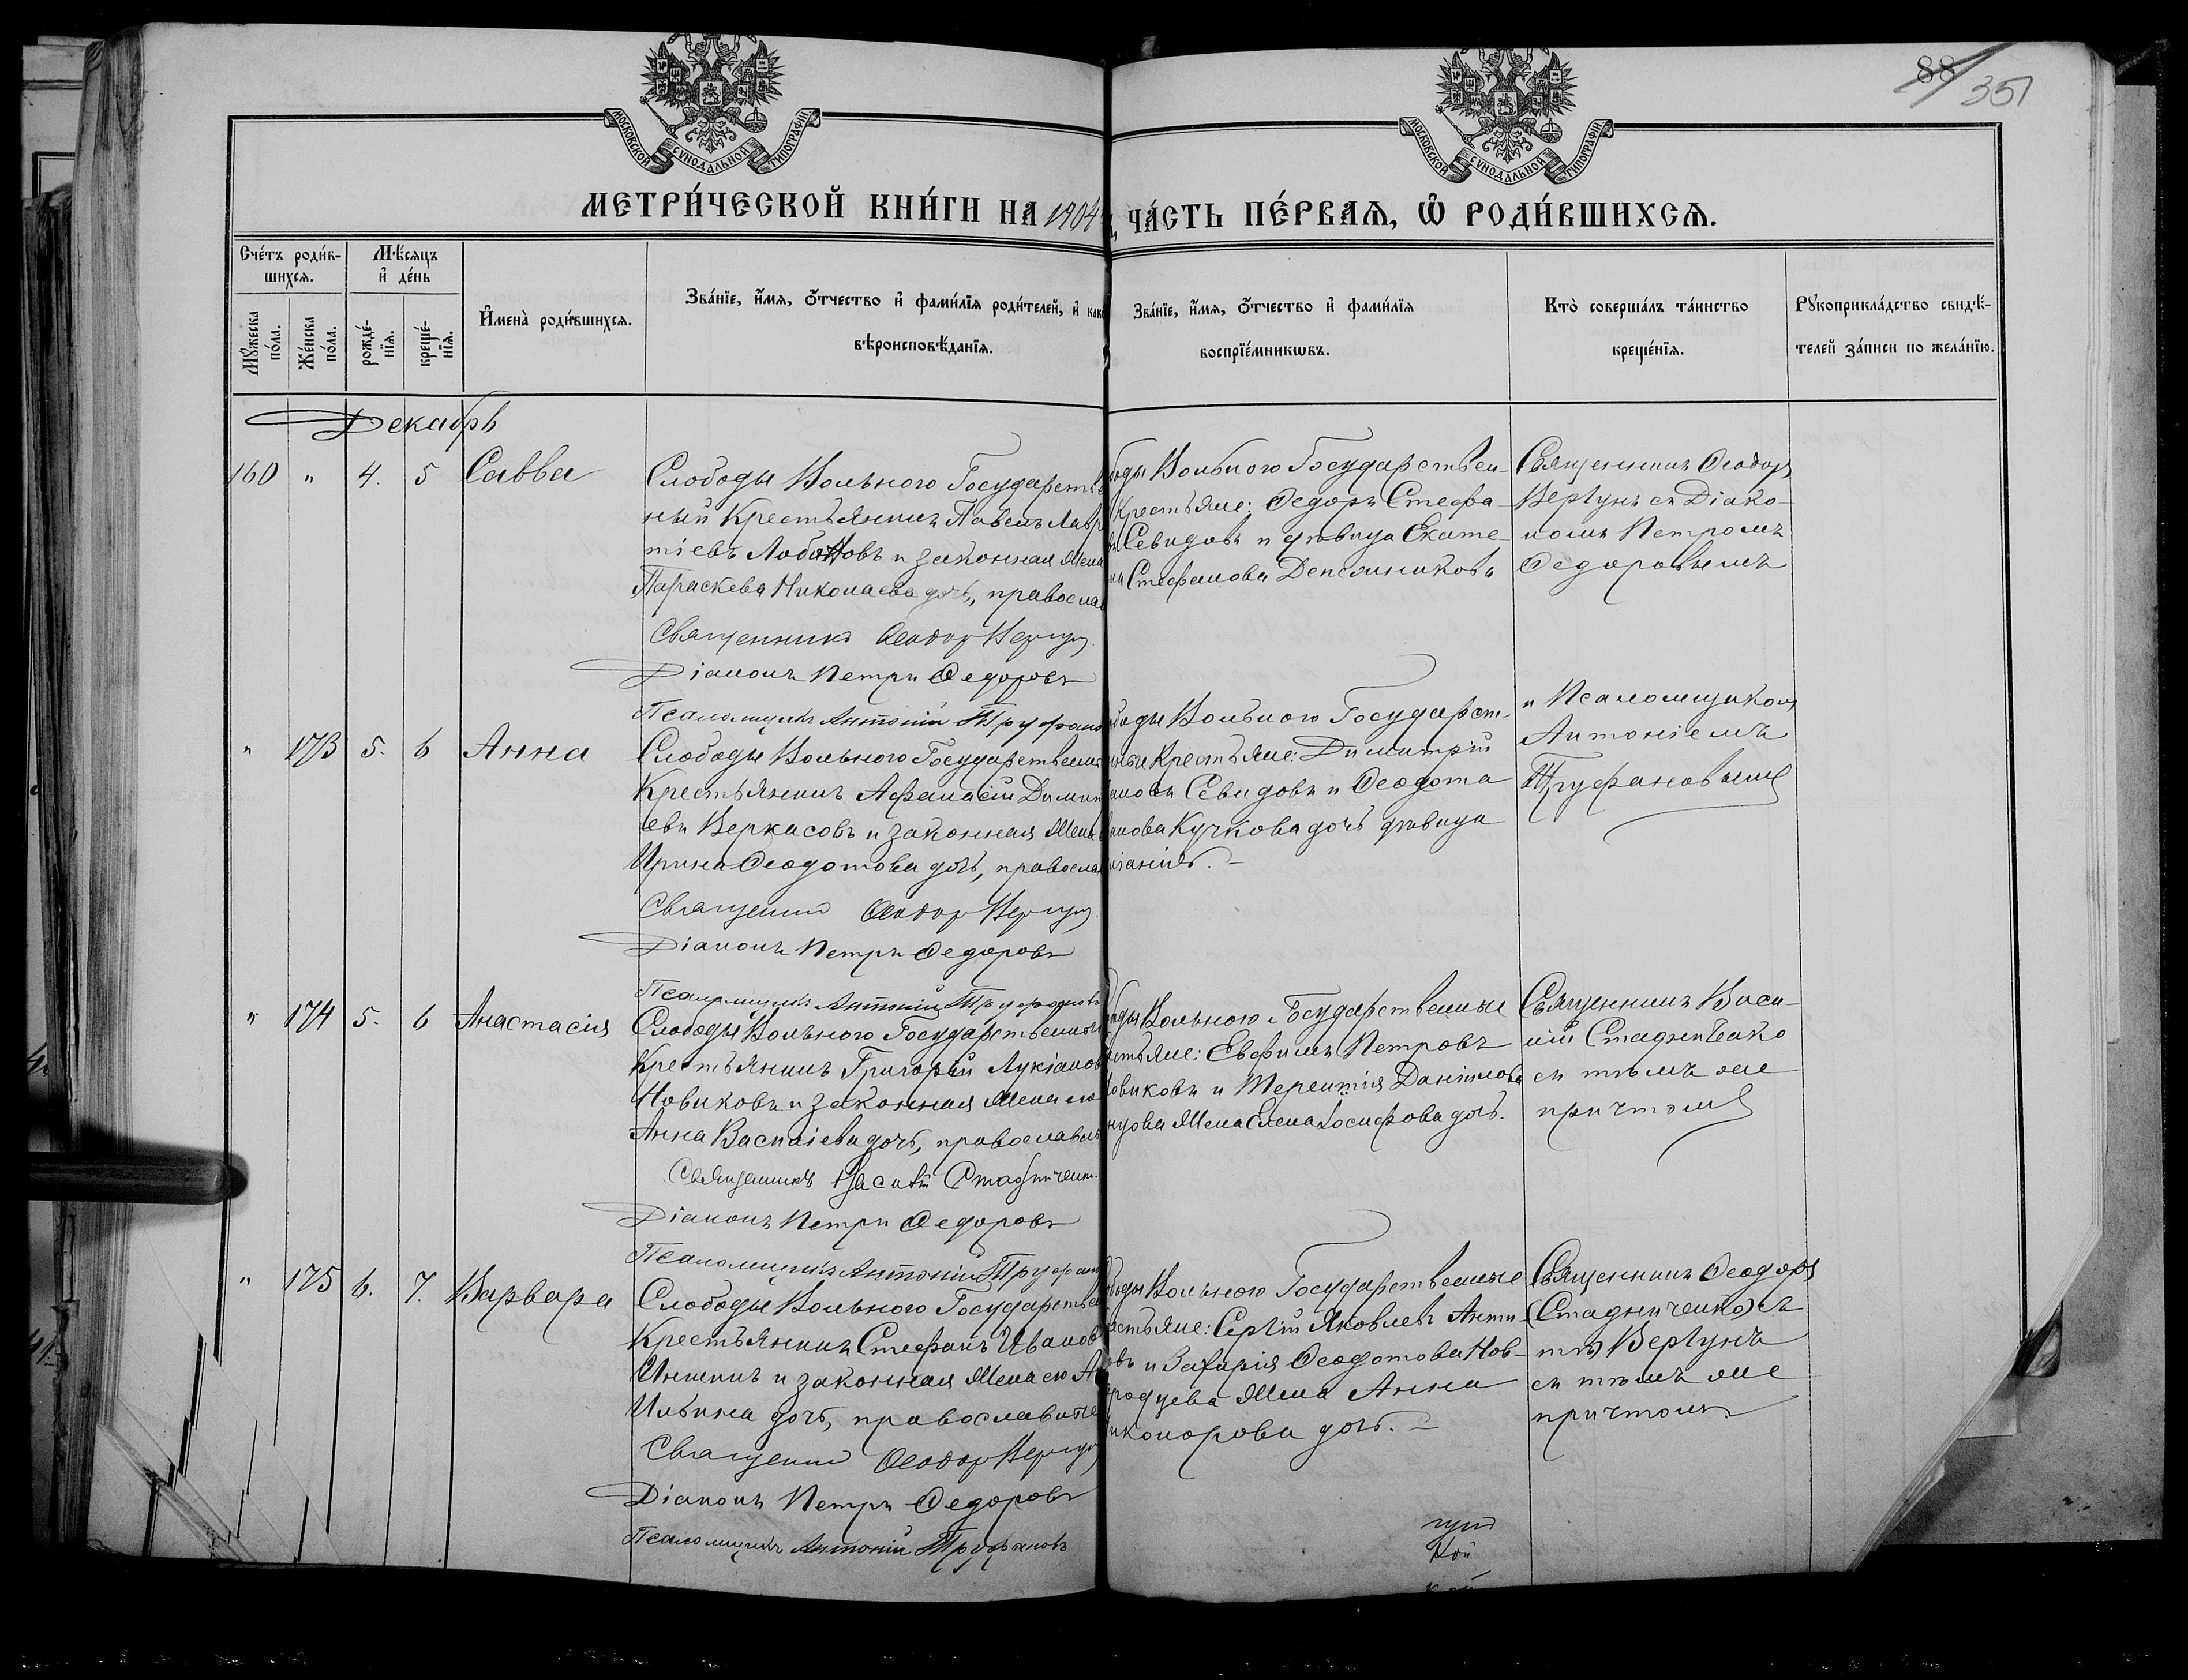 88
351
МОСКОВСКОЙ СѴНОДАЛЬНОЙ ТИПОГРАФІИ
МОСКОВСКОЙ СѴНОДАЛЬНОЙ ТИПОГРАФІИ
МЕТРИ́ЧЕСКОЙ КНИ́ГИ НА 1904
ЧА́СТЬ ПЕ́РВАѦ, Ѽ РОДИ́ВШИХСѦ.
Сче́тъ роди́в-
шихсѧ.
Мꙋ́жеска по́ла.
Же́нска по́ла.
Мѣ́сѧцъ
и҆ де́нь
рожде́-
нїѧ.
креще́-
нїѧ.
И҆мена̀ роди́вшихсѧ.
Зва́нїе, и҆́мѧ, ѻ҆́тчество и҆ фами́лїѧ роди́телей, и҆ како
вѣроисповѣ́данїѧ.
Зва́нїе, и҆́мѧ, ѻ҆́тчество и҆ фами́лїѧ
воспрїе́мникѡвъ.
Кто̀ соверша́лъ та́инство
креще́нїѧ.
Рꙋкоприкла́дство свидѣ́-
телей за́писи по жела́нїю.
Декабрь
160 " 4. 5 Савва
Слободы Вольного Государств
ный Крестьянинъ Павелъ Лавр
тіевъ Лобановъ и законная Жена
Параскева Николаева дочь, правосла
Священникъ Ѳеодоръ Вергунъ
Діаконъ Петръ Ѳедоровъ
Псаломщикъ Антоній Труфанов
боды Вольного Государствен-
Крестьяне: Ѳедоръ Стефа-
въ Севидовъ и дѣвица Екате-
на Стефанова
Священникъ Ѳеодоръ
Вергунъ съ Діако-
номъ Петромъ
Ѳедоровымъ
" 173 5. 6 Анна
Слободы Вольного Государственн
Крестьянинъ Аѳанасій Димит
евъ Веркасовъ и законная Жена
Ирина Ѳеодотова дочь, правосла
Священникъ Ѳеодоръ Вергунъ
Діаконъ Петръ Ѳедоровъ
Псаломщикъ Антоній Труфановъ
боды Вольного Государст-
нные Крестьяне: Димитрій
ановъ Севидовъ и Ѳеодота
анова Кучкова дочь дѣвица
и Псаломщикомъ
Антоніемъ
Труфановымъ
" 174 5. 6 Анастасія
Слободы Вольного Государственны
Крестьянинъ Григорій Лукіанов
Новиковъ и законная Жена его
Анна Василіева дочь, православн
Священникъ Василій Стадниченко
Діаконъ Петръ Ѳедоровъ
Псаломщикъ Антоній Труфан
боды Вольного Государственные
естьяне: Евѳимъ Петровъ
овиковъ и Терентія Даніилова
нцова Жена Елена Іосифова дочь.
Священникъ Васи-
лій Стадниченко
съ тѣмъ же
причтомъ
" 175 6. 7. Варвара
Слободы Вольного Государствен
Крестьянинъ Стефанъ Иванов
Иншинъ и законная Жена его А
Ильина дочь, православные
Священникъ Ѳеодоръ Вергунъ
Діаконъ Петръ Ѳедоровъ
Псаломщикъ Антоній Труфановъ
боды Вольного Государственные
естьяне: Сергій Яковлевъ Анти-
овъ и Захарія Ѳеодотова Нов-
родцева Жена Анна
иконорова дочь.
Священникъ Ѳеодоръ
(Стадниченко) съ
Вергунъ
съ тѣмъ же
причтомъ